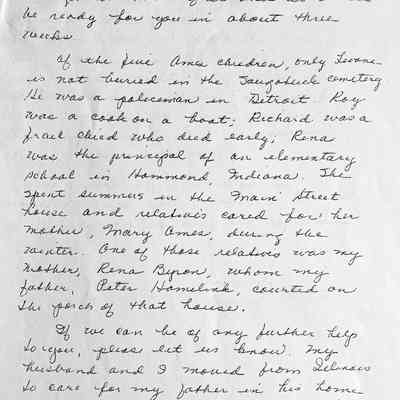 be ready for you in about three
weeks.
If the five Ames children, only
is not buried in the Saugatuck cemetery
He was a policeman in Detroit. Roy
was a cook on a boat; Richard was a
frail child who died early; Rena
was the principal of an elementary
school in Hammond, Indiana. She
spent summers in the Main Street
house and relatives cared for her
mother, Mary Ames, during the
winter. One of those relatives was my
mother, Rena Byron, whom my
father, Peter Hamelink, courted on
the porch of that house.
If we can be of any further help
to you, please let us know. My
husband and I moved from Illinois
to care for my father in his home